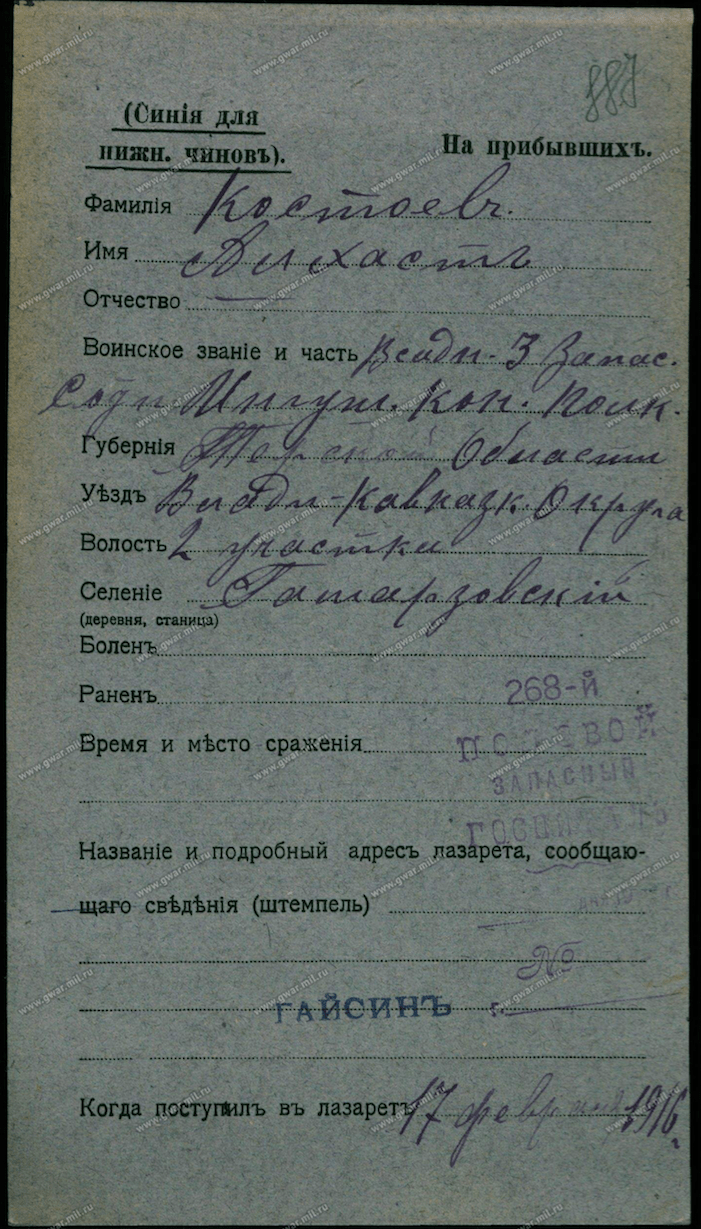 887
(Синія для
нижн. чиновъ).
На прибывшихъ.
Фамилія Костоевъ.
Имя Алхастъ
Отчество
Воинское званіе и часть Всадн. 3 Запас.
Сотн Ингуш. Кон. Полк.
Губернія Терской Области
Уѣздъ Влади-Кавказк. Округа
Волость 2 участка
Селеніе Гамарзовскій
(деревня, станица)
Боленъ
Раненъ
268-й
Время и мѣсто сраженія
ПОЛЕВОЙ
ЗАПАСНЫЙ
ГОСПИТАЛЬ
Названіе и подробный адресъ лазарета, сообщаю-
щаго свѣдѣнія (штемпель)
№
ГАЙСИНЪ г.
Когда поступилъ въ лазаретъ 17 февраля 1916 г